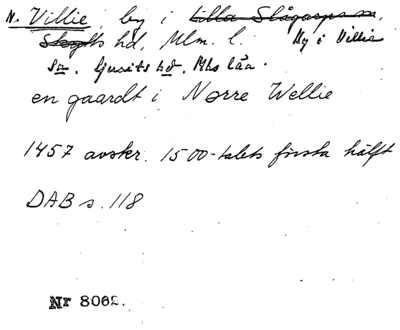 N. Villie, by i Lilla Slågarps sn,
Skytts hd, Mlm. l. By i Villie
sn. Ljunits hd. Mhs län.
en gaardt i Nørre Wellie
1457 avskr. 1500-talets första hälft
DAB s. 118
Nr 8062.